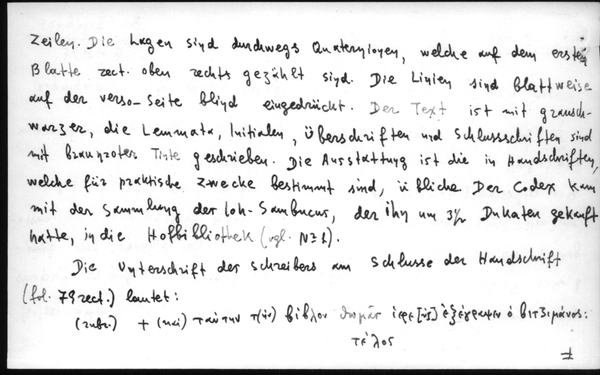 Zeilen. Die Lagen sind durchwegs Quaternionen, welche auf dem ersten
Blatte rect. oben rechts gezählt sind. Die Linien sind blattweise
auf der verso-Seite blind eingedrückt. Der Text ist mit grausch-
warzer, die Lemmata, Initialen, Überschriften und Schlussschriften sind
mit braunroter Tinte geschrieben. Die Ausstattung ist die in Handschriften,
welche für praktische Zwecke bestimmt sind, übliche. Der Codex kam
mit der Sammlung der Joh. Sambucus, der ihn um 3½ Dukaten gekauft
hatte, in die Hofbibliothek (vgl. No 1).
Die Unterschrift des Schreibers am Schlusse der Handschrift
(fol. 79 rect.) lautet:
(rubr.) + (καὶ) ταύτην τ(ὴν) βίβλον θωμᾶς ἱερε[ὺς] ἐξέγραψεν ὁ βιτζιμάνος:
τέλος